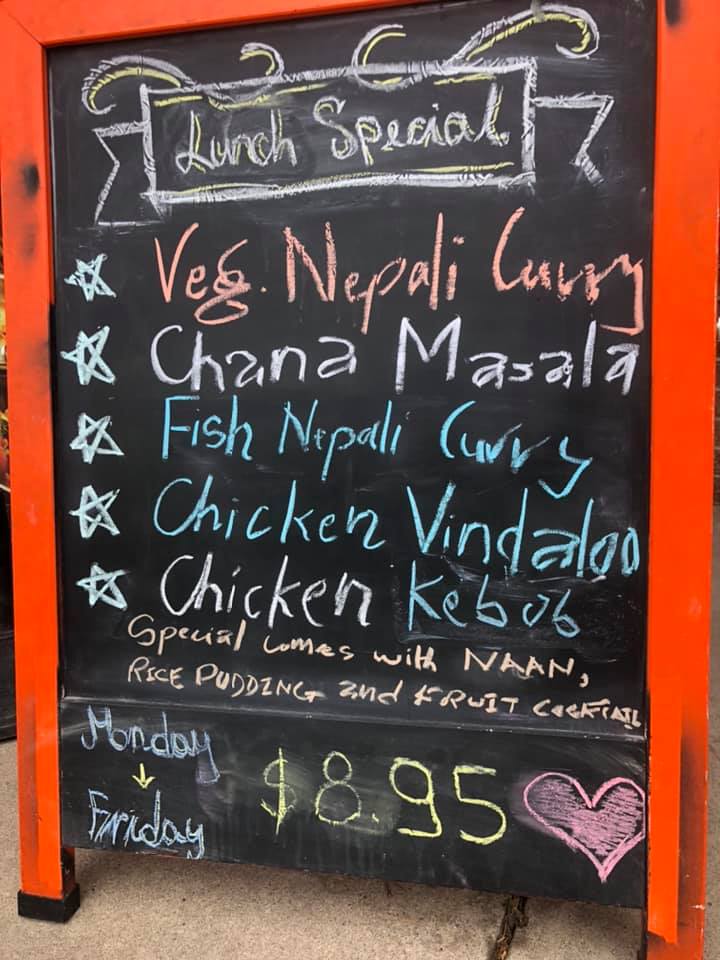 Lunch Special
Veg. Nepali Curry
Chana Masala
Fish Nepali Curry
Chicken Vindaloo
Chicken Kebob
Special comes with NAAN,
RICE PUDDING and FRUIT COCKTAIL
Monday
↓
Friday
$8.95